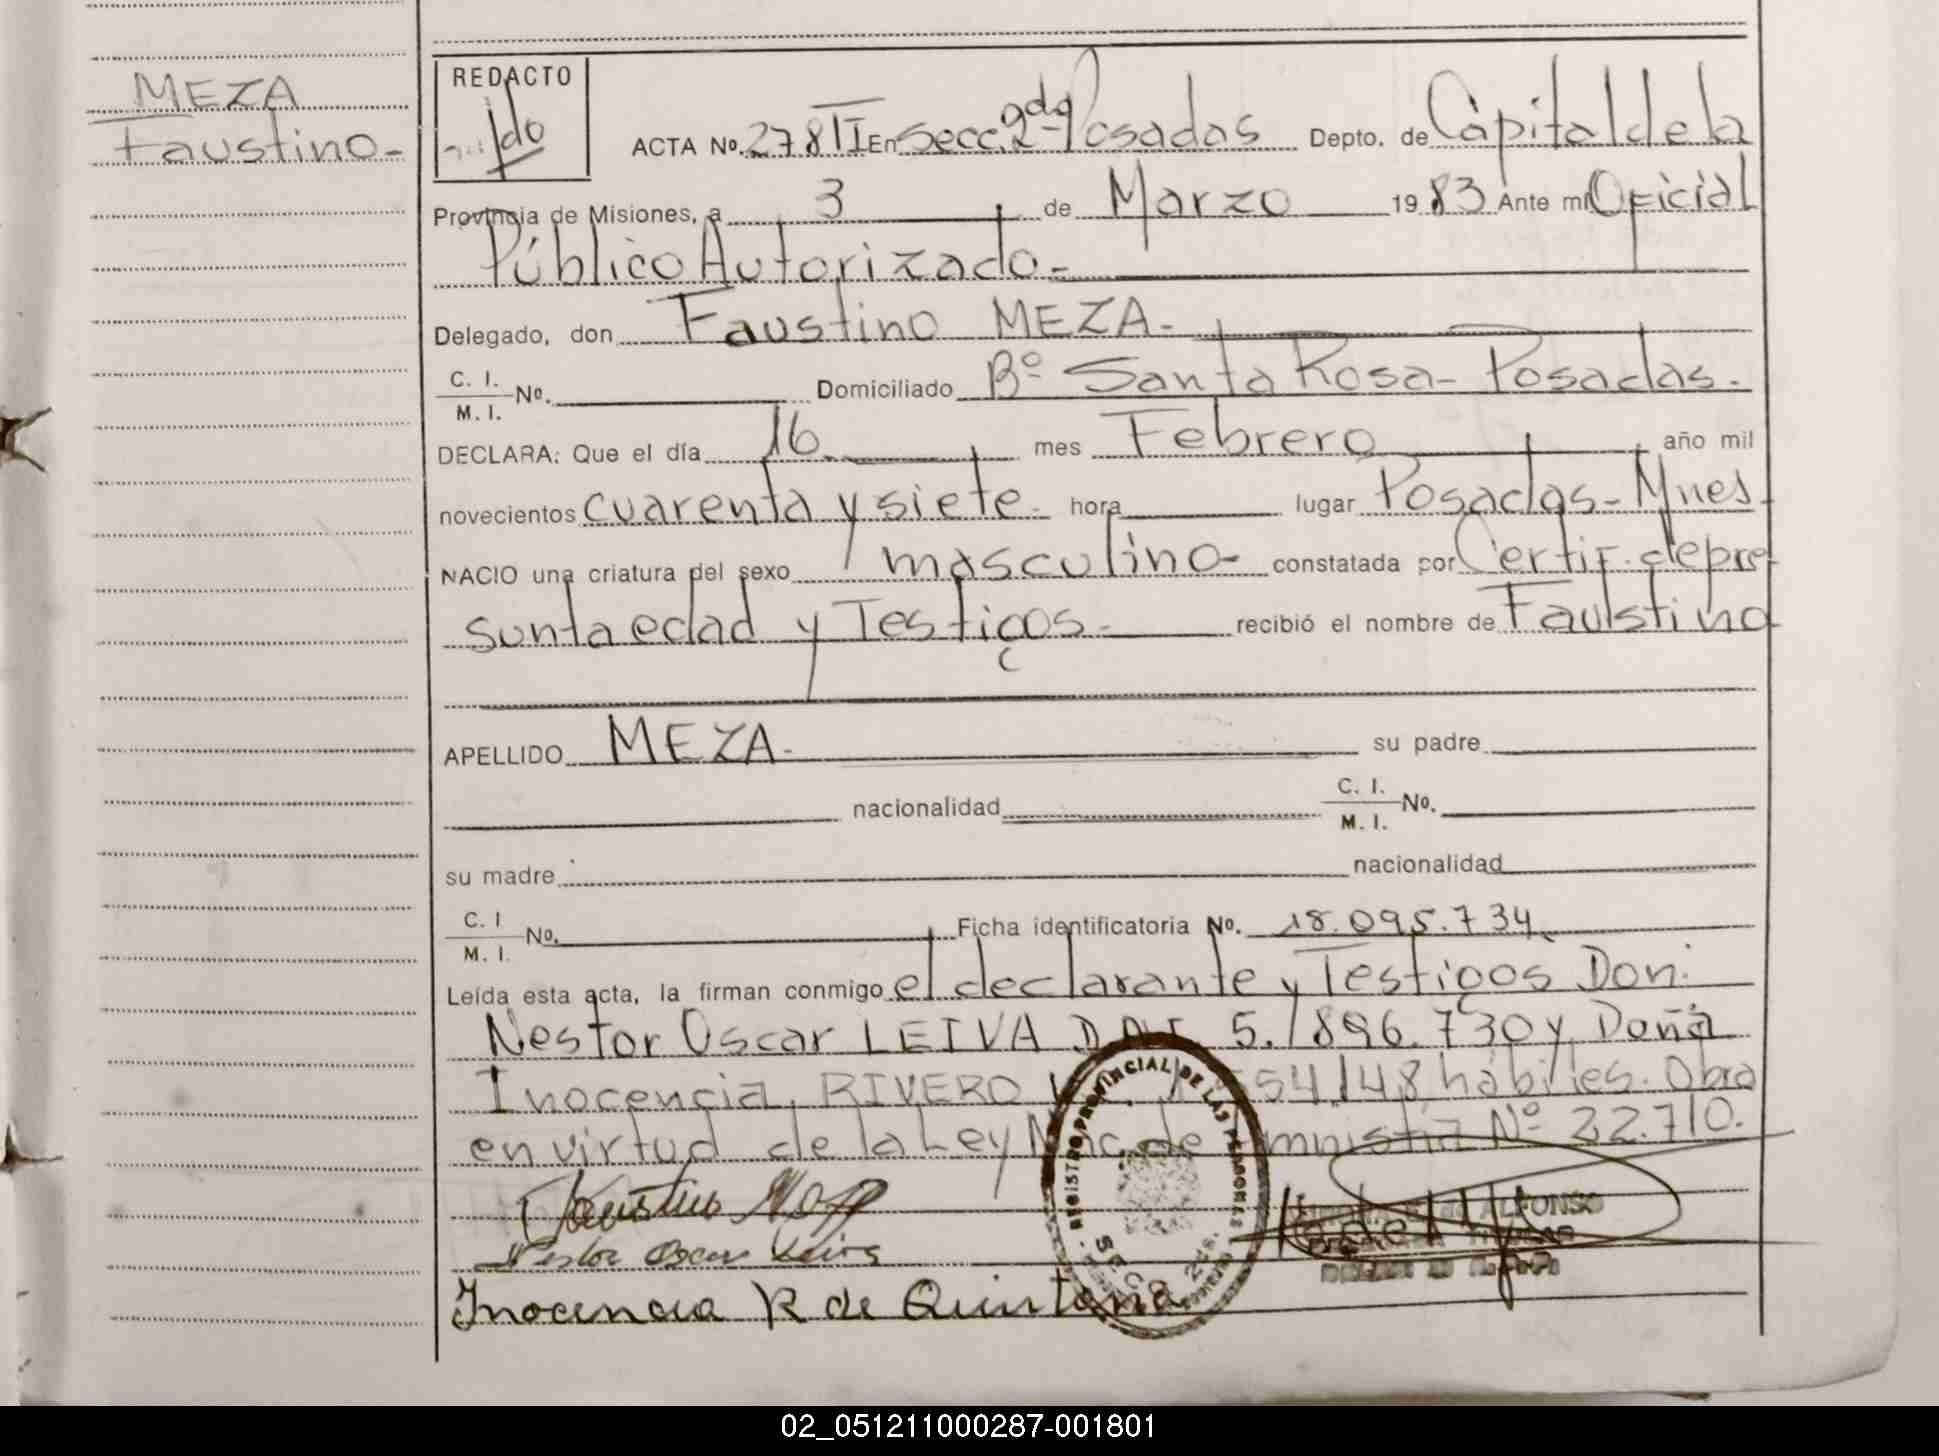 MEZA
Faustino-
REDACTO
ACTA Nº. 278 II En Secc. 2da- Posadas Depto. de Capital de la
Provincia de Misiones, a 3 de Marzo 1983 Ante mi Oficial
Público Autorizado-
Delegado, don Faustino MEZA-
C. I.
M. I. Nº. Domiciliado Bº Santa Rosa- Posadas.
DECLARA: Que el día 16 mes Febrero año mil
novecientos cuarenta y siete- hora lugar Posadas- Mnes.
NACIO una criatura del sexo masculino- constatada por Certif. de pre
sunta edad y Testigos- recibió el nombre de Faustino
APELLIDO MEZA- su padre
nacionalidad C. I.
M. I. Nº.
su madre nacionalidad
C. I
M. I. Nº. Ficha identificatoria Nº. 18.095.734
Leída esta acta, la firman conmigo el declarante y Testigos Don:
Nestor Oscar LEIVA 5.896.730 y Doña
Inocencia RIVERO 54148 hábiles. Obra
en virtud de la Ley Nac. de Amnistia Nº 22.710.
Faustino Meza
Nestor Oscar Leiva
Inocencia R de Quintana
REGISTRO PROVINCIAL DE LAS PERSONAS
ALFONSO
02_051211000287-001801